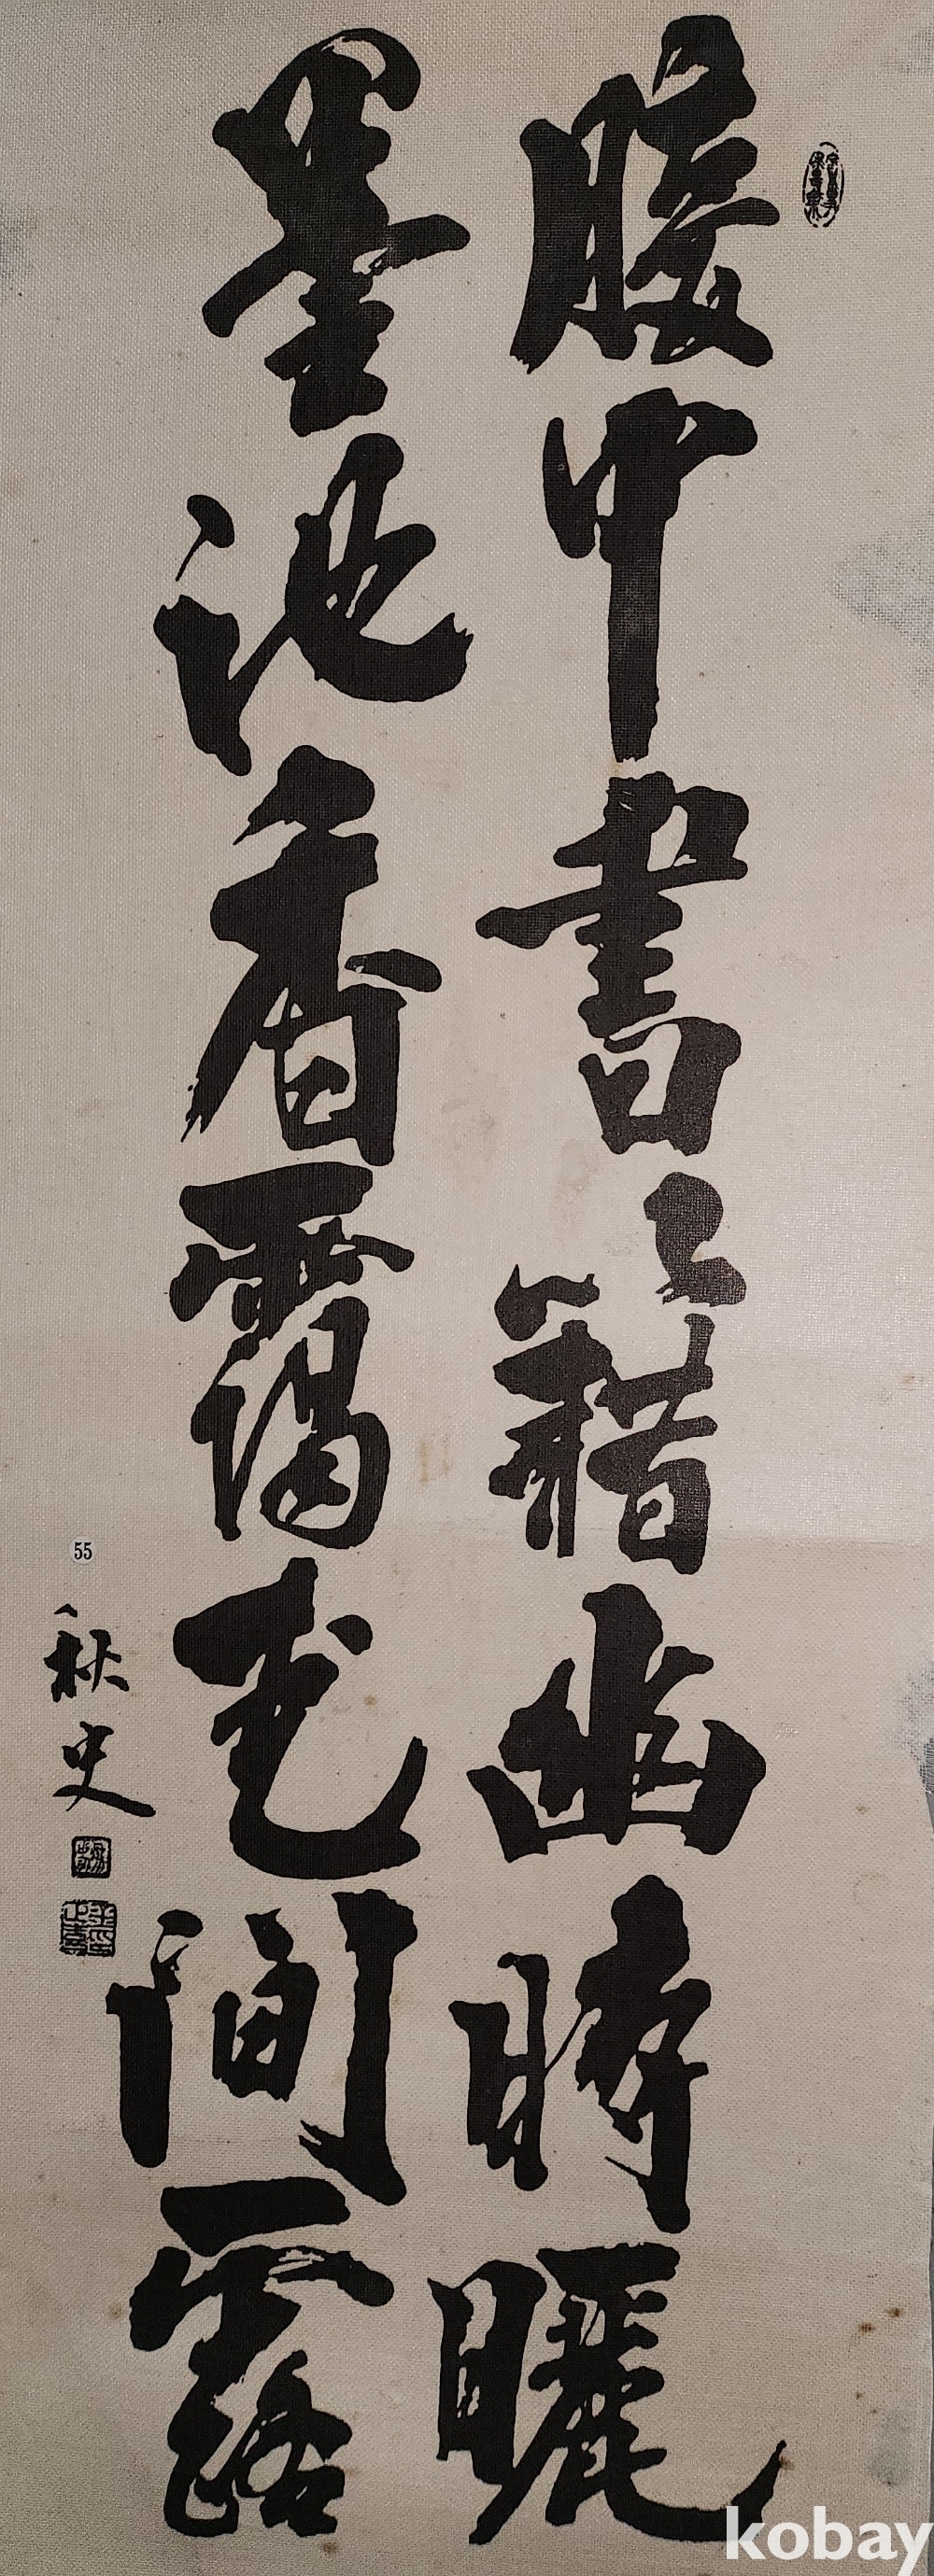 腹中書籍幽時曬
墨池香靄花間露
55
秋史
kobay